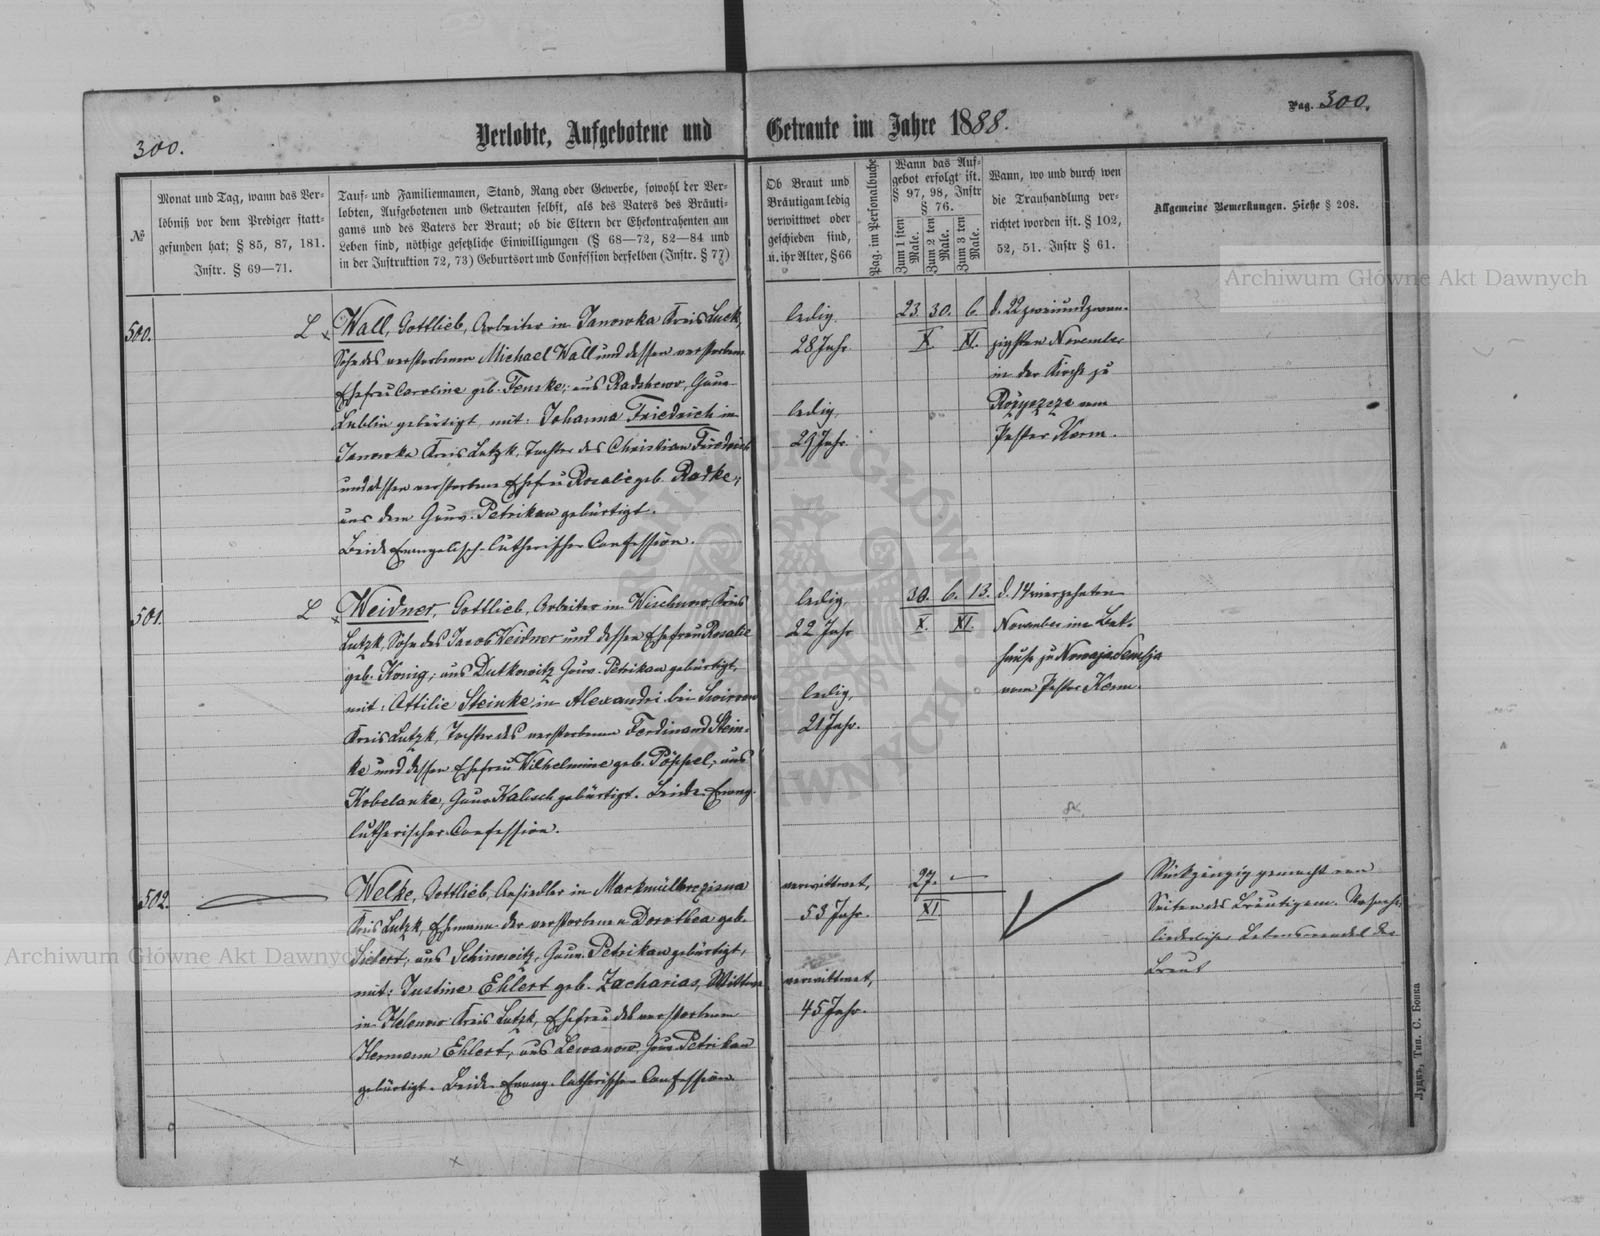 Pag. 300.
300.
Verlobte, Aufgebotene und Getraute im Jahre 1888.
№
Monat und Tag, wann das Ver-
löbniß vor dem Prediger statt-
gefunden hat; § 85, 87, 181.
Instr. § 69—71.
Tauf- und Familiennamen, Stand, Rang oder Gewerbe, sowohl der Ver-
lobten, Aufgebotenen und Getrauten selbst, als des Vaters des Bräuti-
gams und des Vaters der Braut; ob die Eltern der Ehekontrahenten am
Leben sind, nöthige gesetzliche Einwilligungen (§ 68—72, 82—84 und
in der Instruktion 72, 73) Geburtsort und Confession derselben (Instr. § 77)
Ob Braut und
Bräutigam ledig
verwittwet oder
geschieden sind,
u. ihr Alter, § 66
Pag. im Personalbuche
Wann das Auf-
gebot erfolgt ist.
§ 97, 98, Instr
§ 76.
Zum 1 sten
Male.
Zum 2 ten
Male.
Zum 3 ten
Male.
Wann, wo und durch wen
die Trauhandlung ver-
richtet worden ist. § 102,
52, 51. Instr § 61.
Allgemeine Bemerkungen. Siehe § 208.
500.
L
Wall, Gottlieb, Arbeiter in Janowka Kreis Luck,
Sohn des verstorbenen Michael Wall und dessen verstorbenen
Ehefrau Caroline geb. Fenske, aus Radzbewor, Gouv
Lublin gebürtigt, mit: Johanna Friedrich in
Janowka Kreis Lutzk, Tochter des Christian Friedrich
und dessen verstorbene Ehefrau Rosalie geb. Radke,
aus dem Gouv. Petrikau gebürtigt.
Beide Evangelisch-lutherischer Confession.
ledig.
28 Jahr.
ledig,
29 Jahr.
23. 30. 6.
X. XI.
d. 22 zweiundzwan-
zigsten November
in der Kirche zu
Rozyszcze vom
Pastor Kerm.
501.
L
Weidner, Gottlieb, Arbeiter in Wischnow, Kreis
Lutzk, Sohn des Jacob Weidner und dessen Ehefrau Rosalie
geb. König, aus Dutkowitz Gouv. Petrikau gebürtigt,
mit: Ottilie Steinke, in Alexandri bei
Kreis Lutzk, Tochter des verstorbenen Ferdinand Stein-
ke und dessen Ehefrau Wilhelmine geb. Pöppel, aus
Kobelanka, Gouv Kalisch gebürtigt. Beide Evang.
lutherischer Confession.
ledig,
22 Jahr
ledig,
21 Jahr.
30. 6. 13.
X. XI.
d. 14 vierzehnten
November im Bet-
hause zu Nowaja Semlja
vom Pastor Kerm.
502.
Welke, Gottlieb, Ansiedler in
Kreis Lutzk, Ehemann der verstorbenen Dorothea geb.
aus Gouv. Petrikau gebürtigt,
mit: Justine Ehlert geb. Zacharias, Wittwe
in Helenow Kreis Lutzk, Ehefrau des verstorbenen
Hermann Ehlert, aus Lewanow, Gouv Petrikau
gebürtigt. Beide Evang. lutherischer Confession.
verwittwet,
53 Jahr.
verwittwet,
45 Jahr.
27. —
XI
Rückgängig gemacht von
Seiten des Bräutigam. Ursache:
liederlicher Lebenswandel der
Braut
Луцкъ, Тип. С. Бонка
Archiwum Główne Akt Dawnych
Archiwum Główne Akt Dawnych